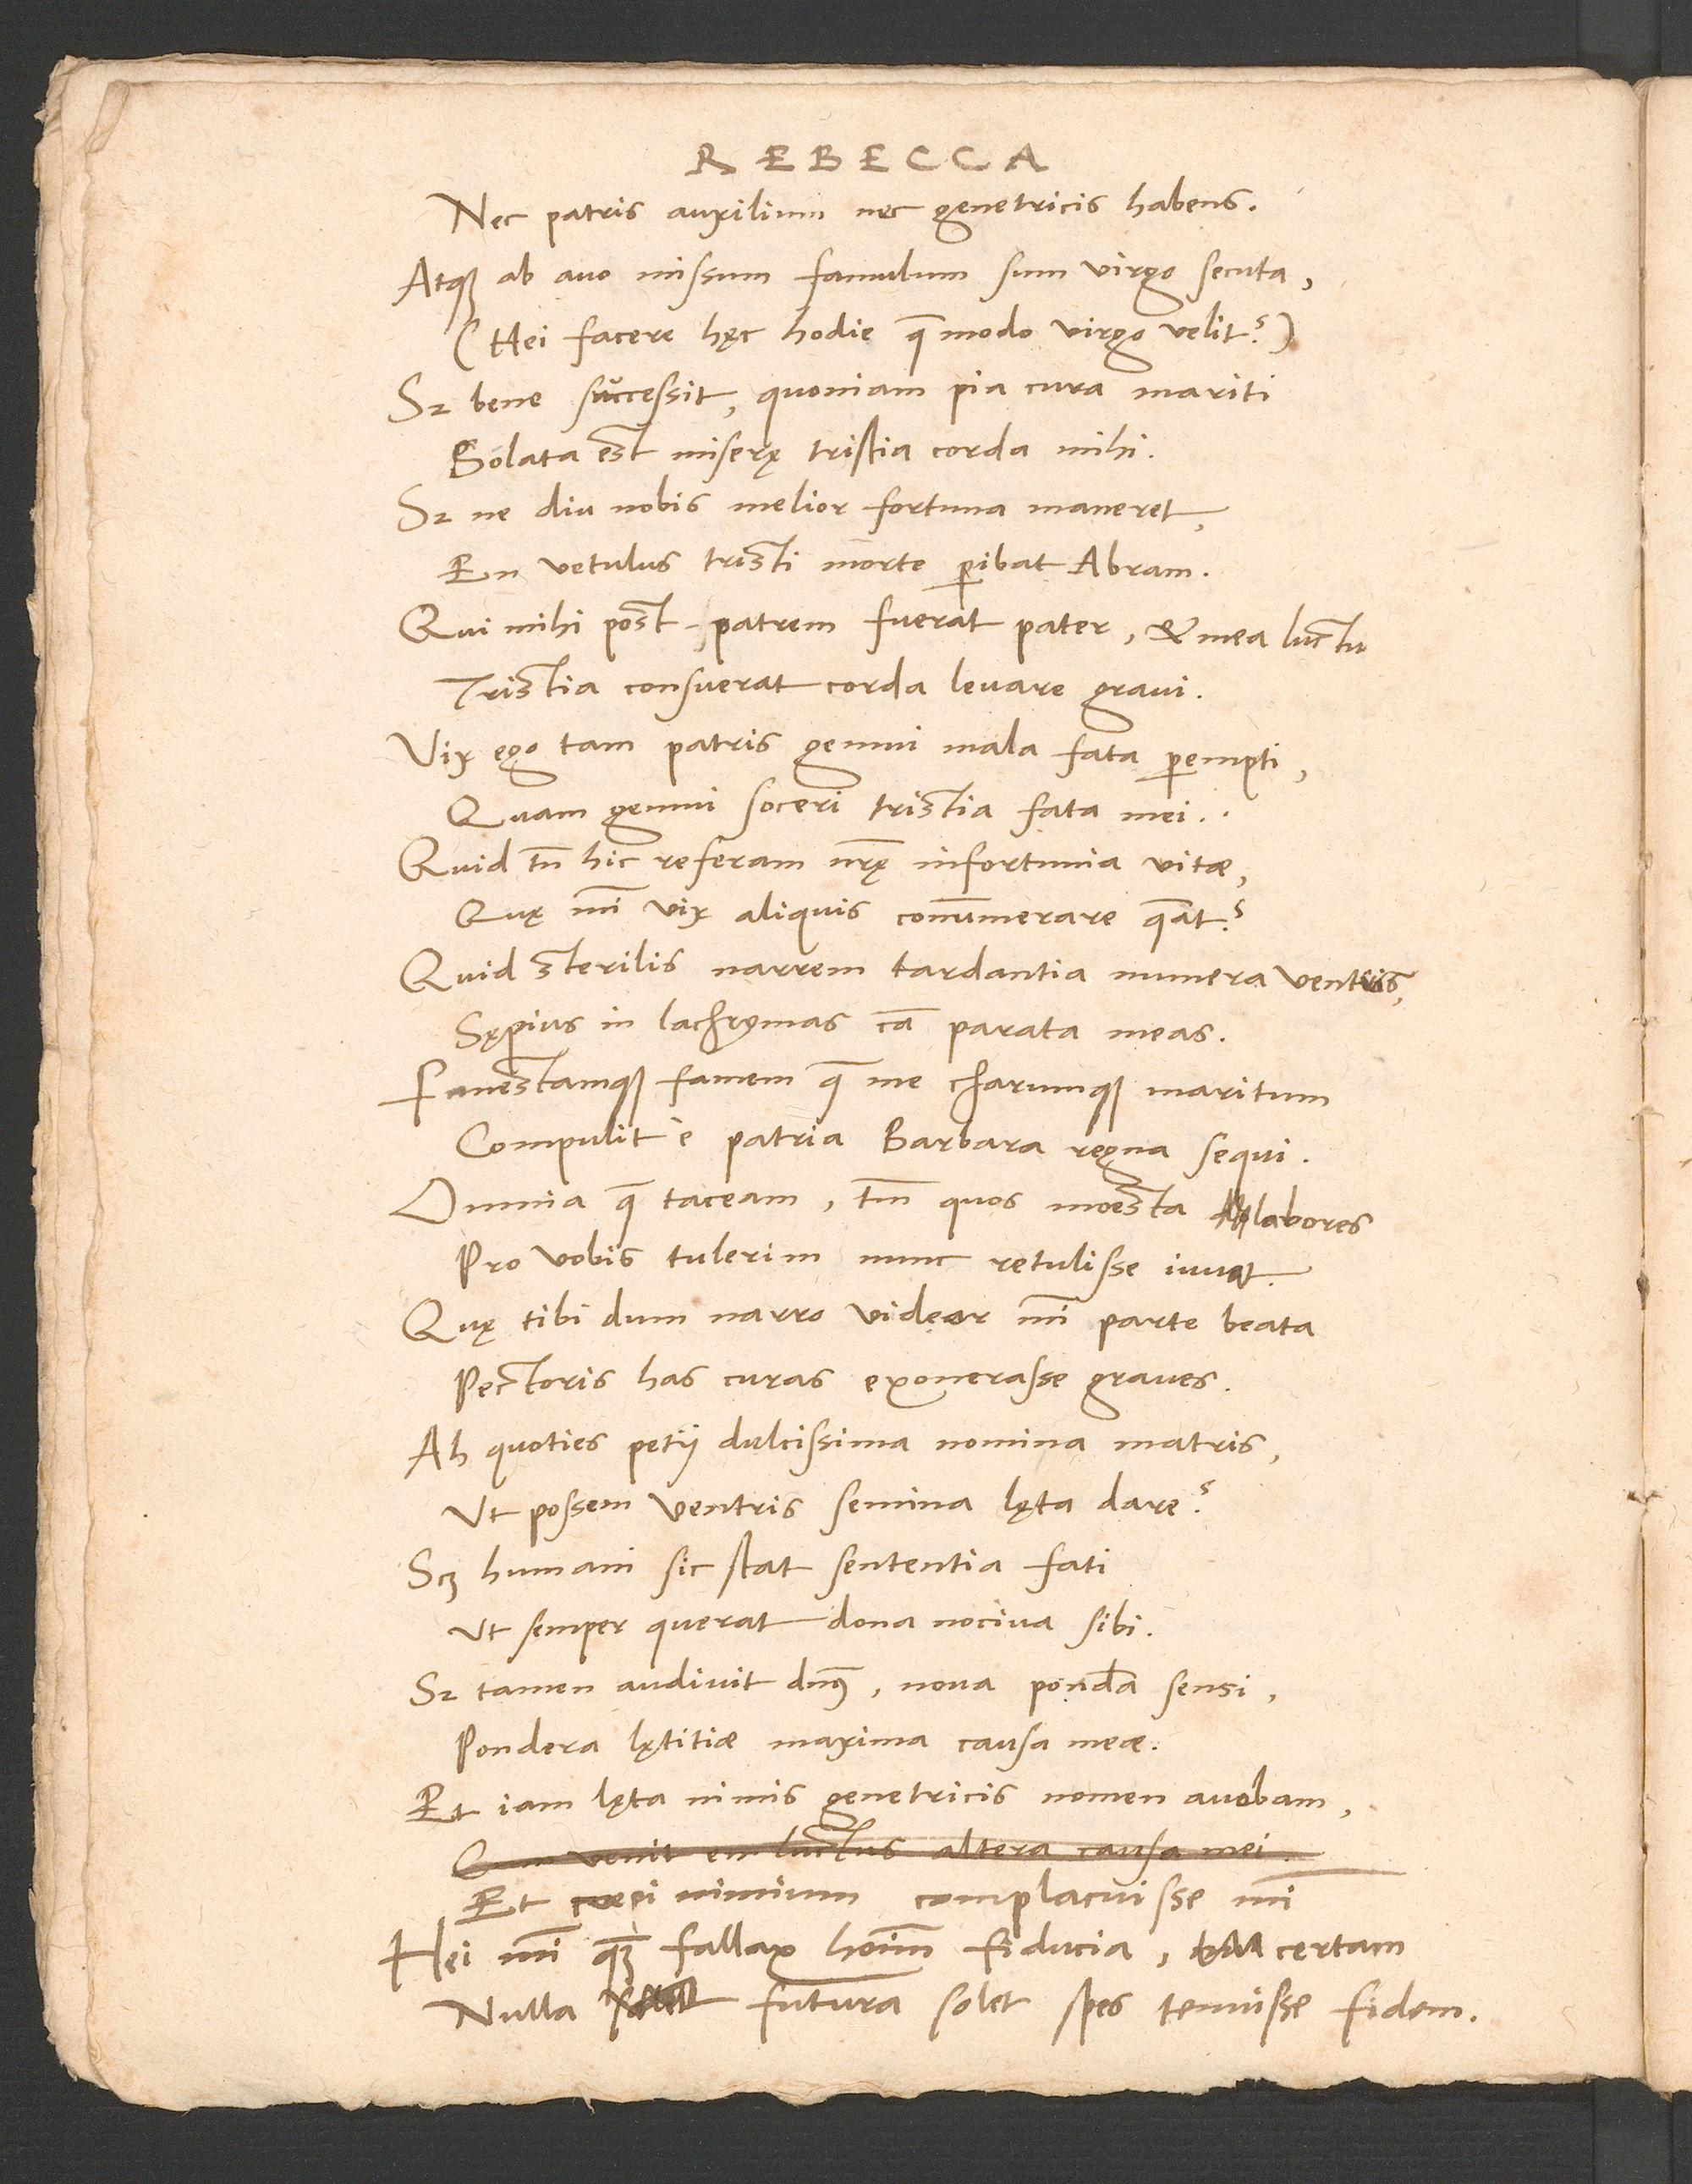 REBECCA
Nec patris auxilium nec genetricis habens.
Atqꝫ ab avo missum famulum sum virgo secuta,
(Hei facere hęc hodie q̄ modo virgo velit?)
Sꝫ bene successit, quoniam pia cura mariti
Solata est miserę tristia corda mihi.
Sꝫ ne diu nobis melior fortuna maneret,
En vetulus tristi morte ꝑibat Abram.
Qui mihi post patrem fuerat pater, & mea luctu
Tristia consuerat corda levare gravi.
Vix ego tam patris gemui mala fata ꝑempti,
Quam gemui soceri tristia fata mei.
Quid tn̄ hic referam nr̄ę infortunia vitæ,
Quę mi̅ vix aliquis connumerare q̄at?
Quid sterilis narrem tardantia munera ventris,
Sępius in lachrymas ca̅ parata meas.
Funestamqꝫ famem q̄ me charumqꝫ maritum
Compulit è patria Barbara regna sequi.
Omnia q̄ taceam, tm̄ quos moesta labores
Pro vobis tulerim nunc retulisse iuvat.
Quę tibi dum narro videor mi̅ parte beata
Pectoris has curas exonerasse graves.
Ah quoties petij dulcissima nomina matris,
Ut possem ventris semina lęta dare?
Scꝫ humani sic stat sententia fati
Ut semper querat dona nociva sibi.
Sꝫ tamen audivit dn̄s, nova pondera sensi,
Pondera lętitiæ maxima causa meæ.
Et iam lęta nimis genetricis nomen avebam,
Cum venit en luctus altera causa mei.
Et cœpi nimium complacuisse mi̅
Hei mi̅ qꝫ fallax hoīm fiducia, certam
Nulla futura solet spes tenuisse fidem.